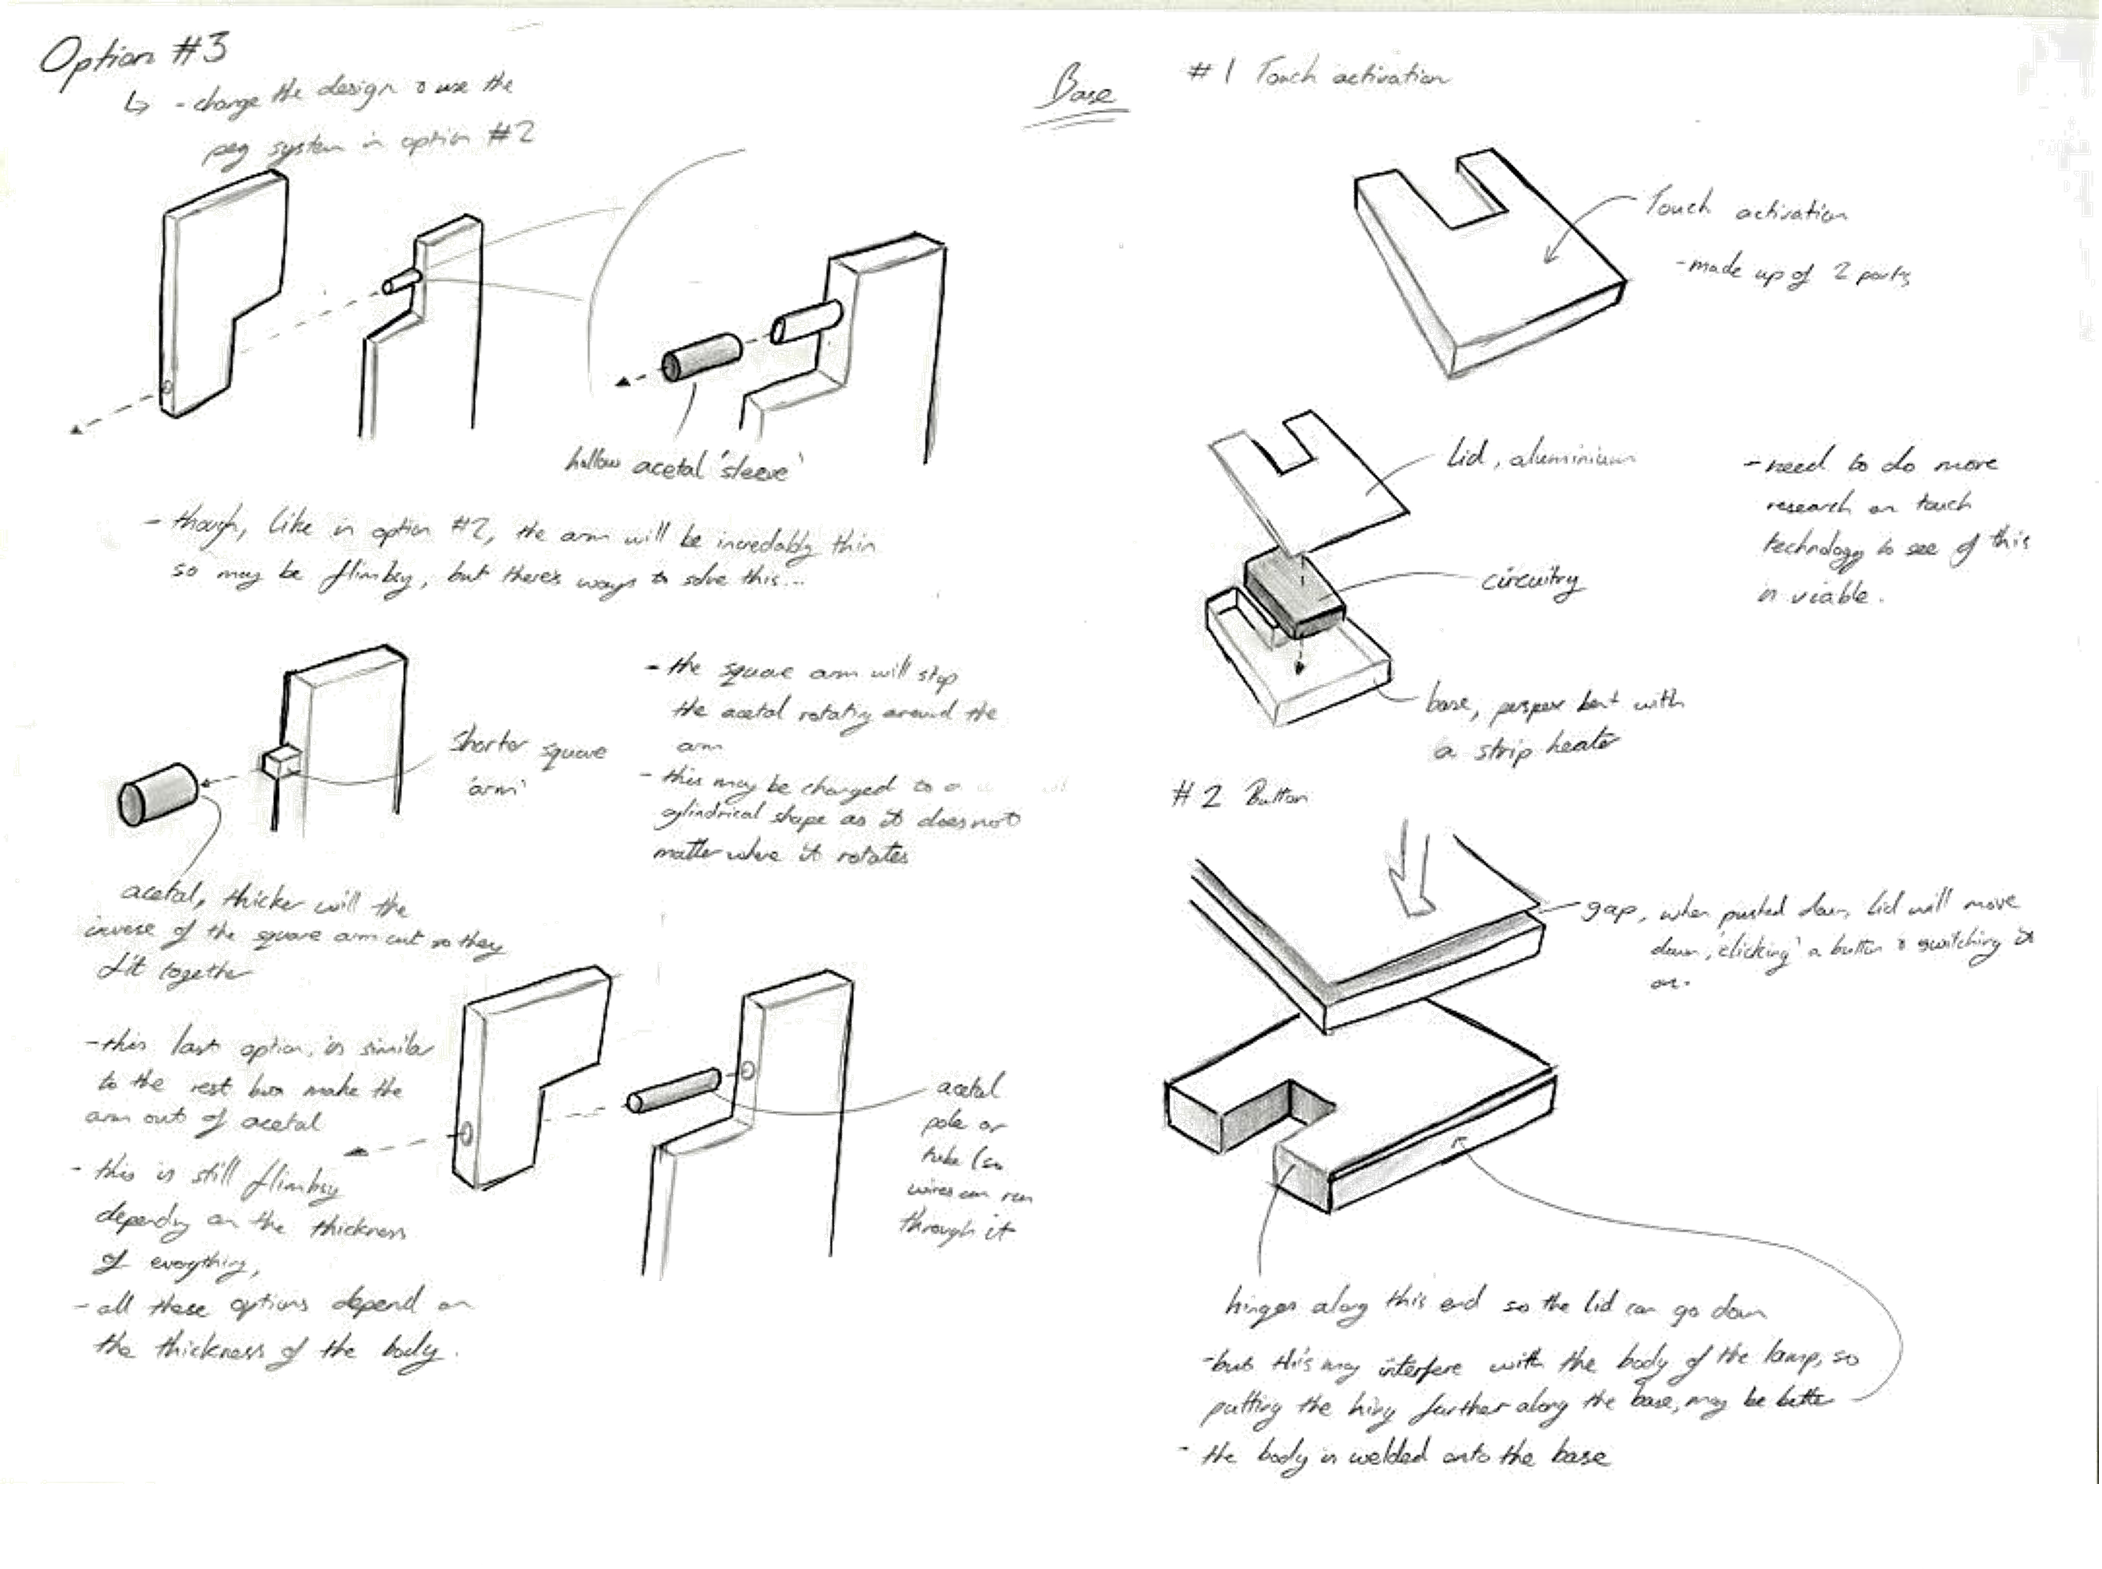 Option #3
↳ - change the design & use the
peg system in option #2
hollow acetal 'sleeve'
- though, like in option #2, the arm will be incredably thin
so may be flimbsy, but there's ways to solve this...
shorter square
'arm'
- the square arm will stop
the acetal rotating around the
arm
- this may be changed to a
cylindrical shape as it does not
matter where it rotates
acetal, thicker will the
inverse of the square arm cut so they
fit together
- this last option, is similar
to the rest but make the
arm out of acetal
- this is still flimbsy
dependy on the thickness
of everything,
- all these options depend on
the thickness of the body.
acetal
pole or
tube (so
wires can run
through it
Base
#1 Touch activation
Touch activation
- made up of 2 parts
Lid, aluminium
circuitry
base, perspex bent with
a strip heater
- need to do more
research on touch
technology to see if this
is viable.
#2 Button
gap, when pushed down, lid will move
down, 'clicking' a button & switching it
on.
hinges along this end so the lid can go down
- but this may interfere with the body of the lamp, so
putting the hing further along the base, may be better
- the body is welded onto the base